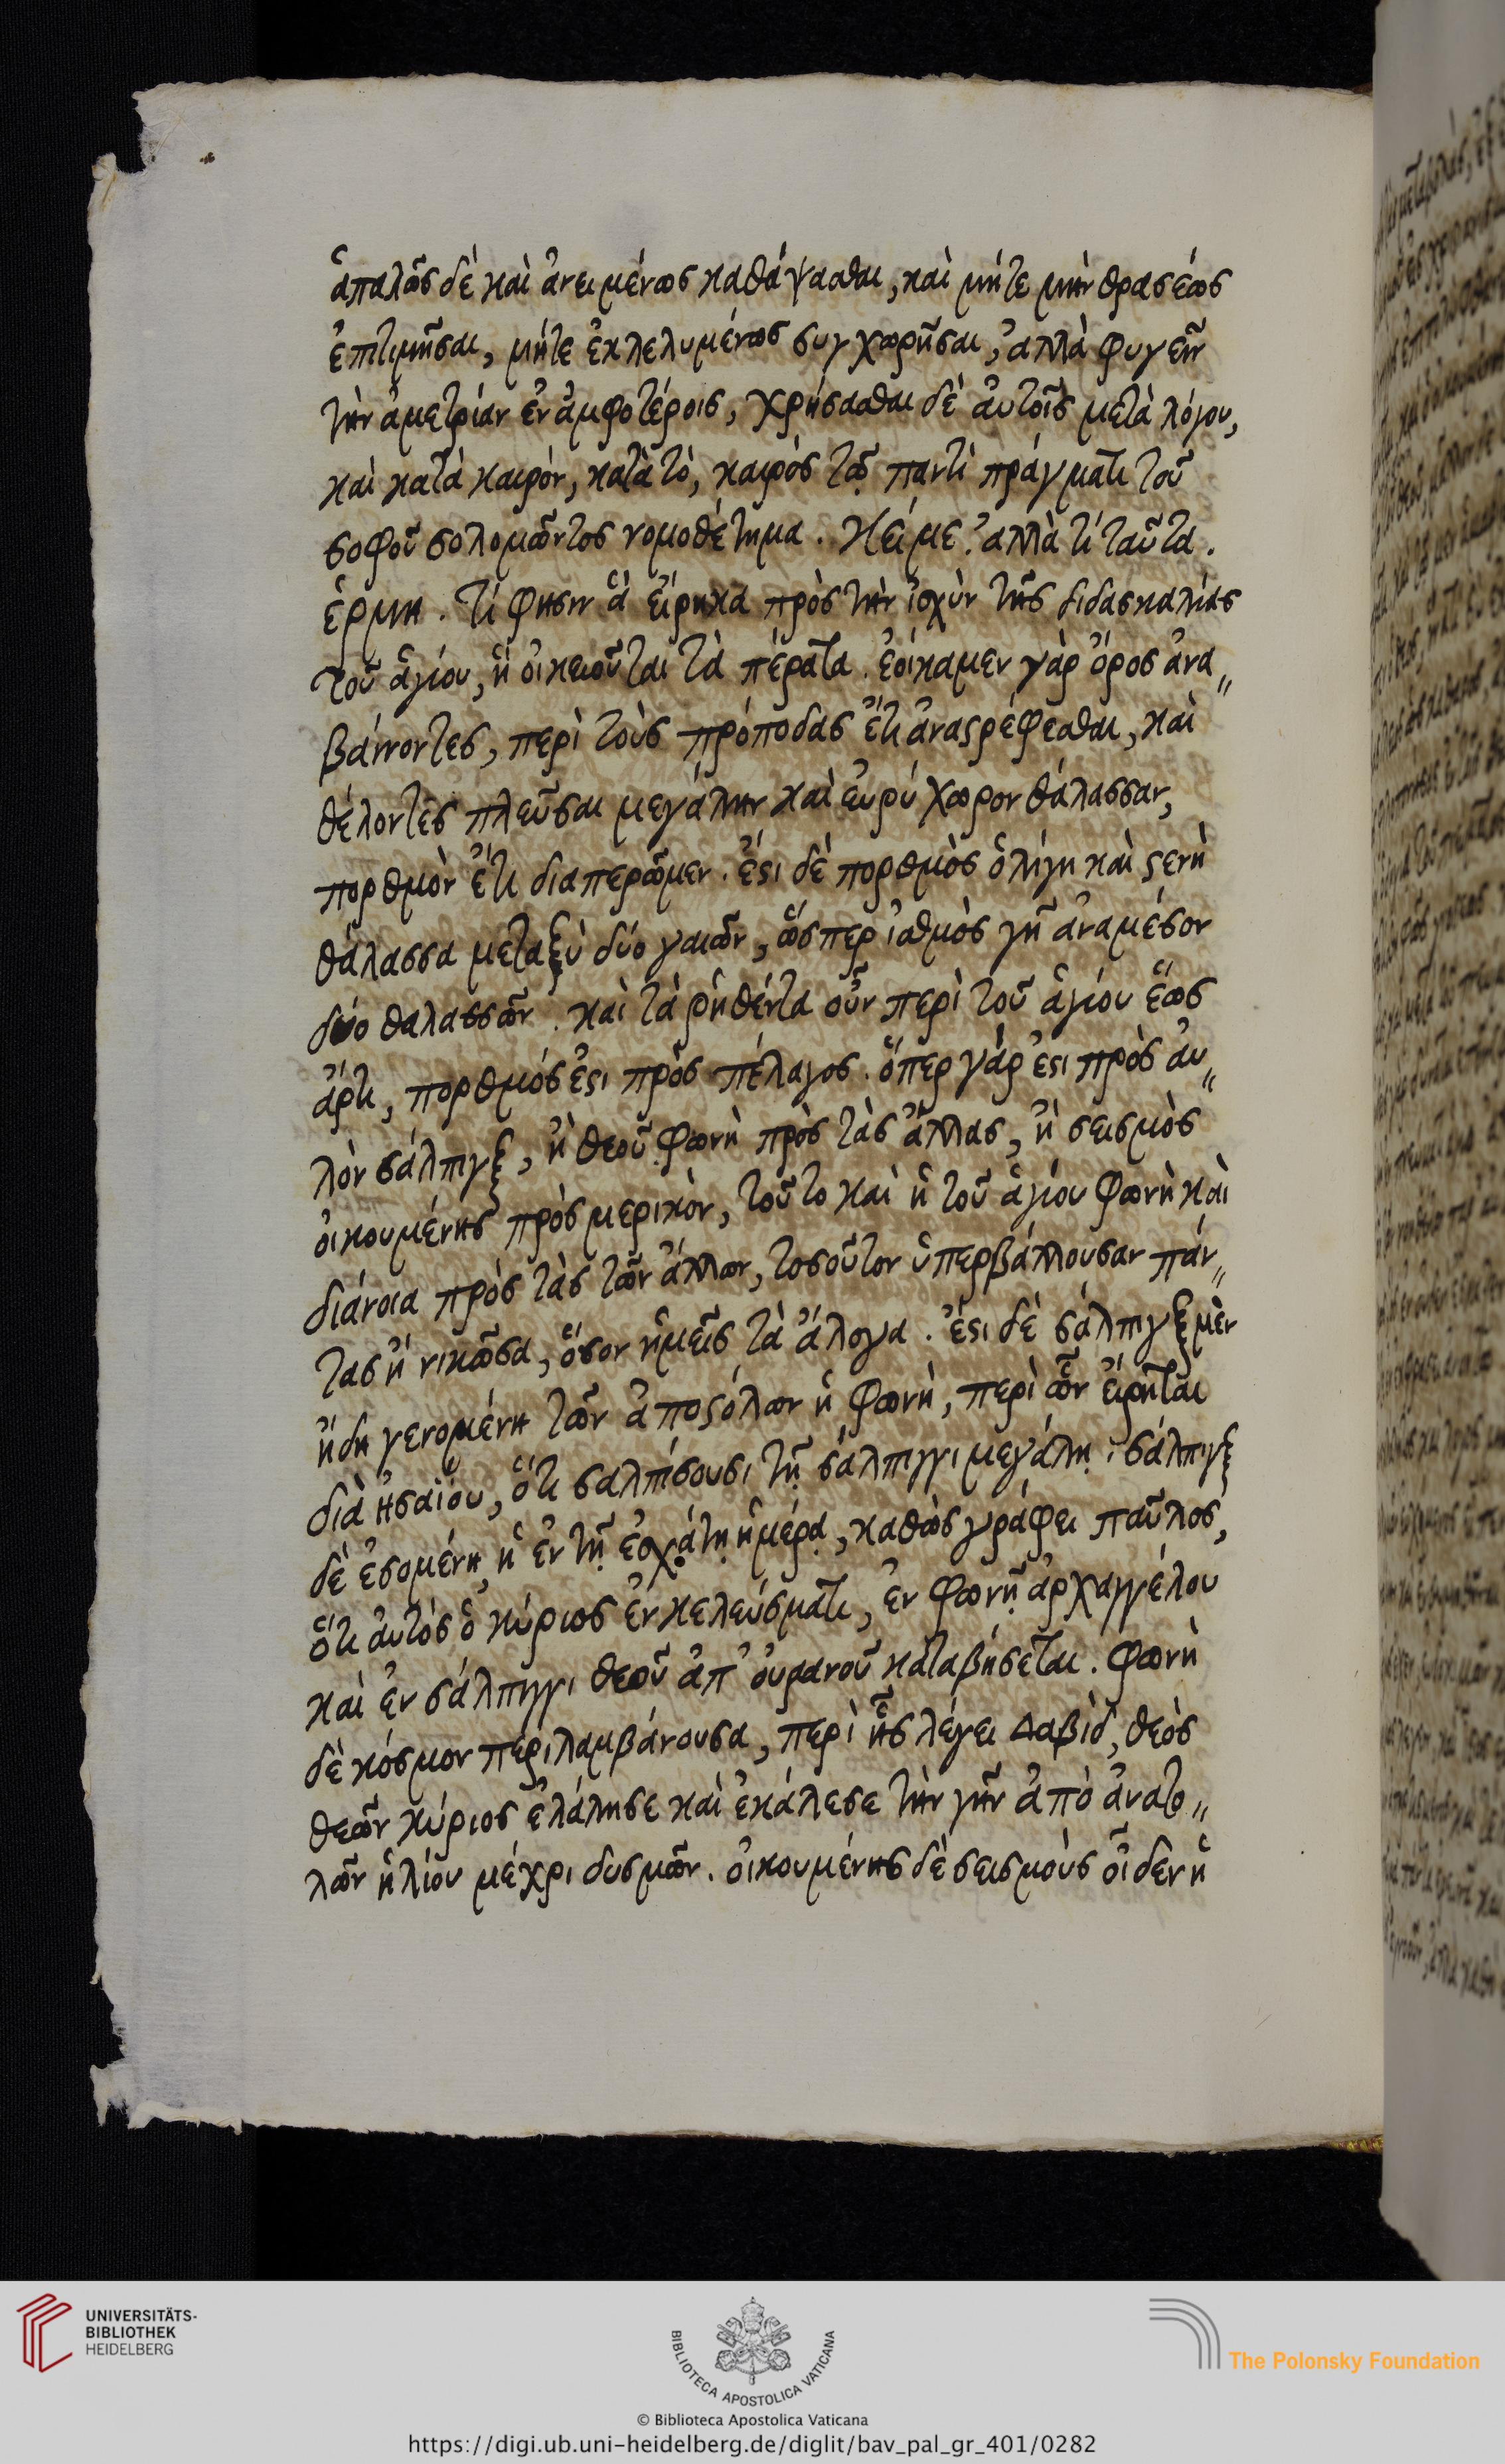 ἁπαλῶς δὲ καὶ ἀνειμένως καθάψασθαι, καὶ μήτε μὴν θρασέως
ἐπιτιμῆσαι, μήτε ἐκλελυμένως συγχωρῆσαι, ἀλλὰ φυγεῖν
τὴν ἀμετρίαν ἐν ἀμφοτέροις, χρήσασθαι δὲ ἀυτοῖς μετὰ λόγου,
καὶ κατὰ καιρόν, κατὰ τὸ, καιρὸς τῷ παντὶ πράγματι τοῦ
σοφοῦ σολομῶντος νομοθέτημα. Κείμε. ἀλλὰ τί ταῦτα.
ἑρμη. τί φησιν ἃ εἴρηκα πρὸς τὴν ἰσχὺν τῆς διδασκαλίας
τοῦ ἁγίου, ᾗ οἰκειοῦται τὰ πέρατα. ἐοίκαμεν γὰρ ὄρος ἀνα〃
βαίνοντες, περὶ τοὺς πρόποδας ἔτι ἀναστρέφεσθαι, καὶ
θέλοντες πλεῦσαι μεγάλην καὶ ευρύχωρον θάλασσαν,
πορθμὸν ἔτι διαπερῶμεν. ἔστι δὲ πορθμὸς ὀλίγη καὶ στενὴ
θάλασσα μεταξὺ δύο γαιῶν, ὥσπερ ἰσθμὸς γῆ ἀναμέσον
δύο θαλασσῶν. καὶ τὰ ῥηθέντα οὖν περὶ τοῦ ἁγίου ἕως
ἄρτι, πορθμός ἐστι πρὸς πέλαγος. ὅπερ γάρ ἐστι πρὸς ἀυ〃
λὸν σάλπιγξ, ἢ θεοῦ φωνὴ πρὸς τὰς ἄλλας, ἢ σεισμὸς
οἰκουμένης πρὸς μερικὸν, τοῦτο καὶ ἡ τοῦ ἁγίου φωνὴ καὶ
διάνοια πρὸς τὰς τῶν ἄλλων, τοσοῦτον ὑπερβάλλουσαν πάν〃
τας ἢ νικῶσα, ὅσον ἡμεῖς τὰ ἄλογα. ἔστι δὲ σάλπιγξ μὲν
ἤδη γενομένη τῶν ἀποστόλων ἡ φωνὴ, περὶ ὧν εἴρηται
διὰ ἡσαΐου, ὅτι σαλπίσουσι τῇ σάλπιγγι μεγάλῃ. σάλπιγξ
δὲ ἐσομένη, ἡ ἐν τῇ ἐσχάτῃ ἡμέρᾳ, καθὼς γράφει παῦλος,
ὅτι ἀυτὸς ὁ κύριος ἐν κελεύσματι, ἐν φωνῇ ἀρχαγγέλου
καὶ ἐν σάλπιγγι θεοῦ ἀπ' ὀυρανοῦ καταβήσεται. φωνὴ
δὲ κόσμον περιλαμβάνουσα, περὶ ἧς λέγει Δαβὶδ, θεὸς
θεῶν κύριος ἐλάλησε καὶ ἐκάλεσε τὴν γῆν ἀπὸ ἀνατο〃
λῶν ἡλίου μέχρι δυσμῶν. οἰκουμένης δὲ σεισμοὺς οἶδεν ἡ
UNIVERSITÄTS-
BIBLIOTHEK
HEIDELBERG
BIBLIOTECA APOSTOLICA VATICANA
The Polonsky Foundation
© Biblioteca Apostolica Vaticana
https://digi.ub.uni-heidelberg.de/diglit/bav_pal_gr_401/0282